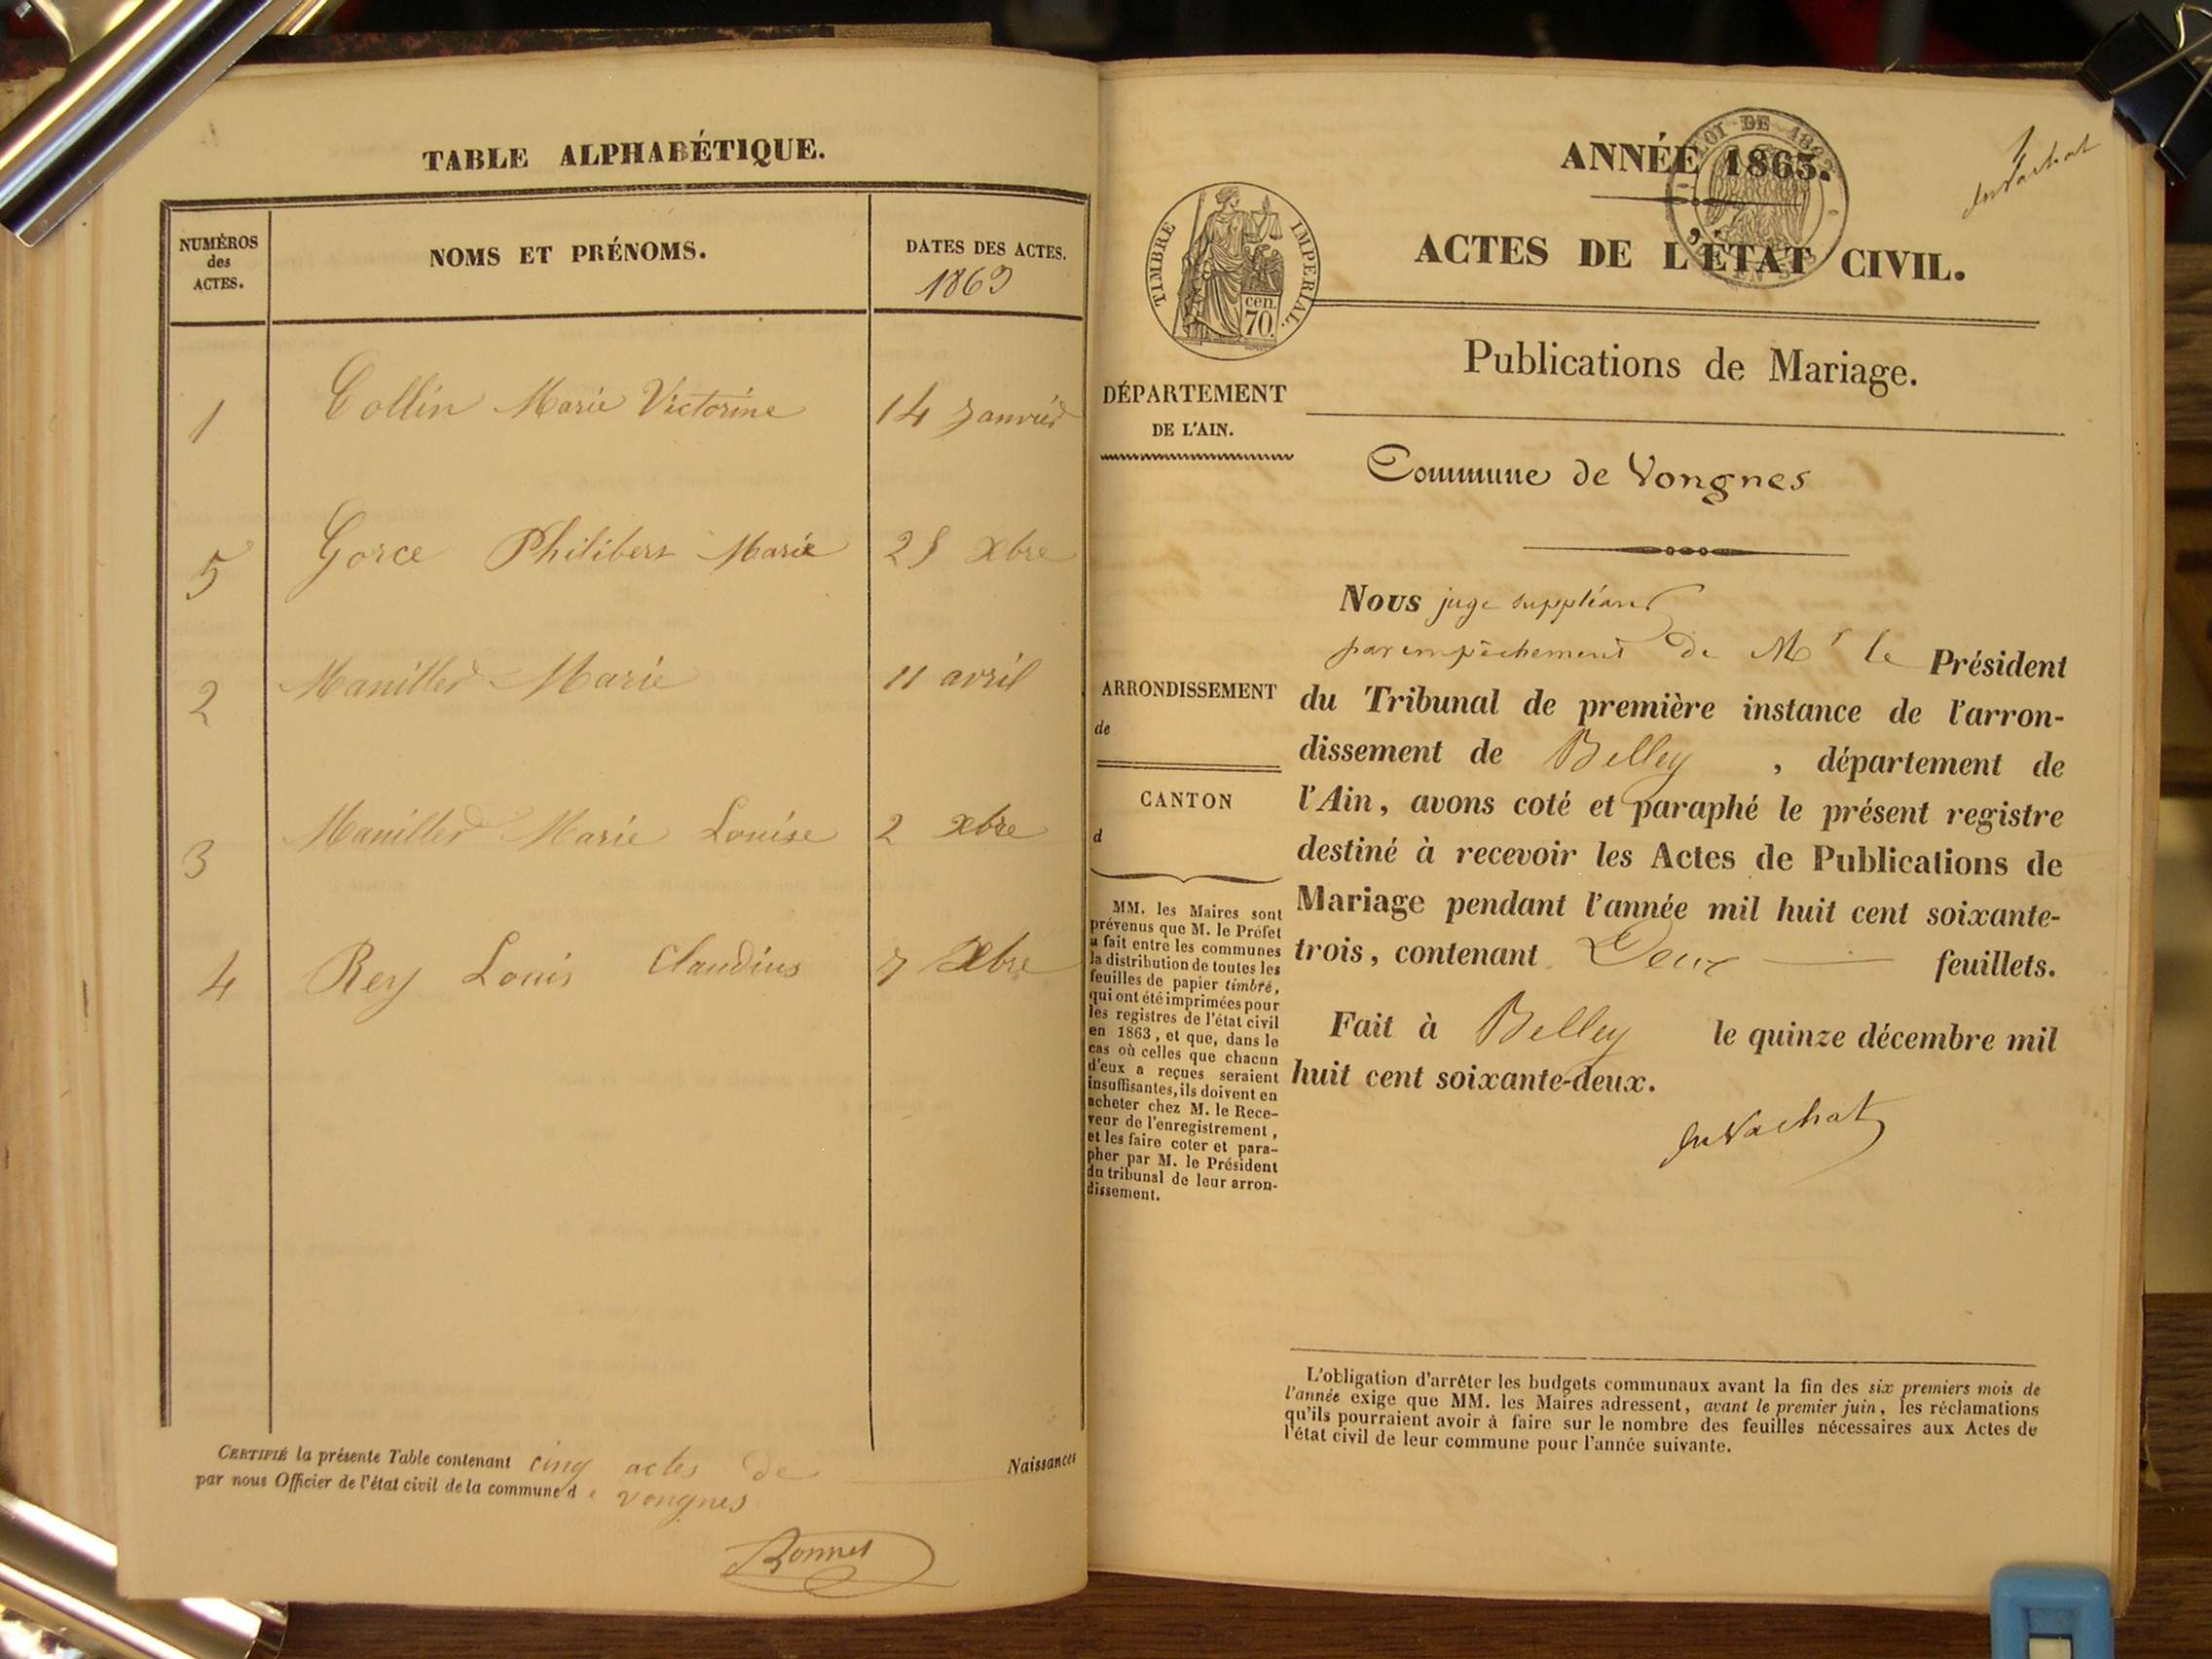 TABLE ALPHABÉTIQUE.
NUMÉROS des ACTES.
NOMS ET PRÉNOMS.
DATES DES ACTES.
1863
1 Collin Marie Victorine 14 Janvier
5 Gorce Philibert Marie 28 Xbre
2 Maniller Marie 11 avril
3 Maniller Marie Louise 2 xbre
4 Rey Louis Claudius 7 Xbre
CERTIFIÉ la présente Table contenant cinq actes de Naissances
par nous Officier de l'état civil de la commune de Vongnes
Bonnet
ANNÉE 1863.
LOI DE 1862
1
TIMBRE IMPERIAL.
cen.
70.
ACTES DE L'ÉTAT CIVIL.
Publications de Mariage.
DÉPARTEMENT
DE L'AIN.
Commune de Vongnes
ARRONDISSEMENT
de
CANTON
d
MM. les Maires sont
prévenus que M. le Préfet
a fait entre les communes
la distribution de toutes les
feuilles de papier timbré,
qui ont été imprimées pour
les registres de l'état civil
en 1863, et que, dans le
cas où celles que chacun
d'eux a reçues seraient
insuffisantes, ils doivent en
acheter chez M. le Rece-
veur de l'enregistrement,
et les faire coter et para-
pher par M. le Président
du tribunal de leur arron-
dissement.
Nous juge suppléant
par empêchement de Mr le Président
du Tribunal de première instance de l'arron-
dissement de Belley, département de
l'Ain, avons coté et paraphé le présent registre
destiné à recevoir les Actes de Publications de
Mariage pendant l'année mil huit cent soixante-
trois, contenant Deux feuillets.
Fait à Belley le quinze décembre mil
huit cent soixante-deux.
L'obligation d'arrêter les budgets communaux avant la fin des six premiers mois de
l'année exige que MM. les Maires adressent, avant le premier juin, les réclamations
qu'ils pourraient avoir à faire sur le nombre des feuilles nécessaires aux Actes de
l'état civil de leur commune pour l'année suivante.